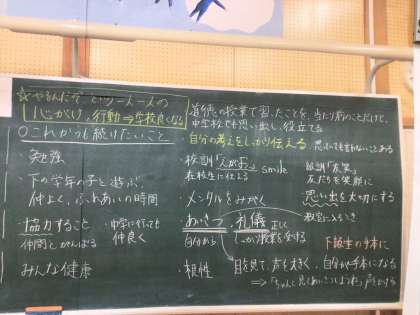 ☆やるんだぞ という一人一人の
心がけ、行動⇒学校良くなる
○これからも続けたいこと
・勉強
・下の学年の子と遊ぶ
仲よく、ふれあいの時間
・協力すること
仲間とがんばる
・中学に行っても
仲良く
・みんな健康
道徳の授業で習ったことを、当たり前のことだけど、
中学校でも思い出し、役立てる
・自分の考えをしっかり伝える
思っても言わないことある
・校訓「えがお」 smile
在校生に伝える
級訓「友笑」
友だちを笑顔に
・メンタルをみがく
思い出を大切にする
・あいさつ、礼儀正しく
自分から
しっかり授業を受ける
教室に入るとき
下級生の手本に
・根性
目を見て、声も大きく、自分が手本になる
⇒「ちゃんと見てあいさつしようね」声をかける